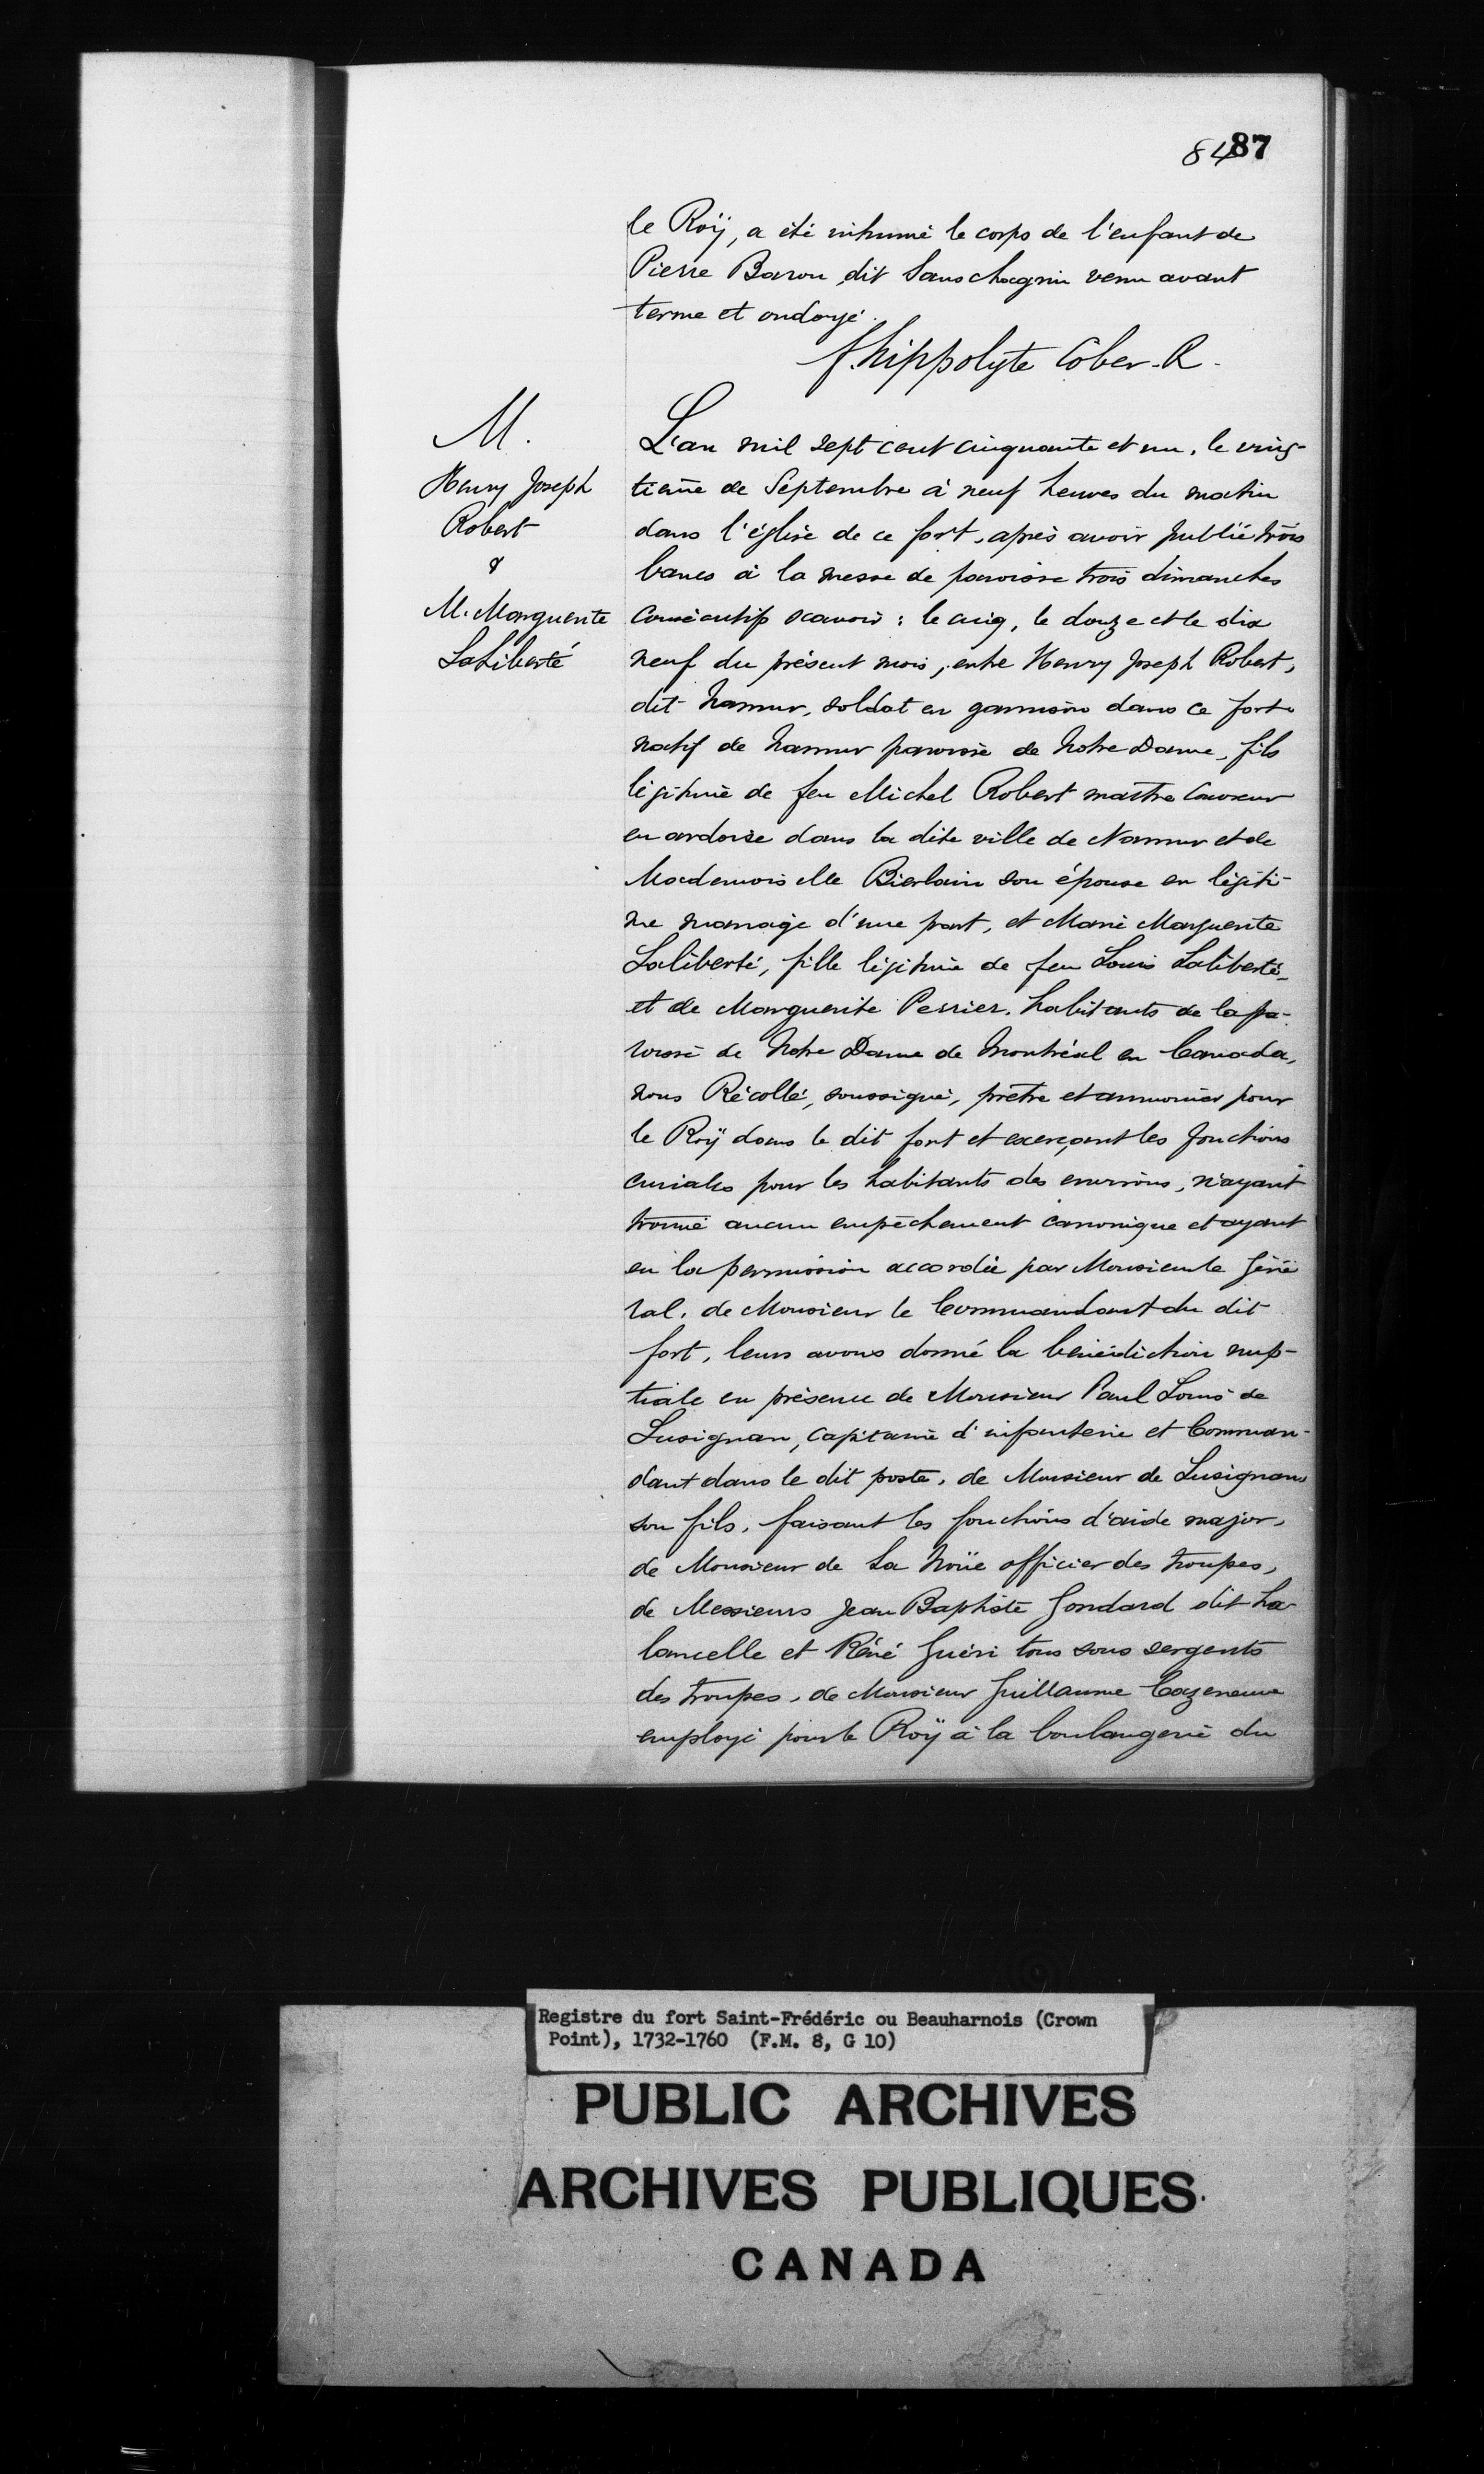 84 87
le Roÿ, a été inhumé le corps de l'enfant de
Pierre Baron dit Sanschagrin venu avant
terme et ondoyé.
f. hippolyte Cober. R.
M.
Henry Joseph
Robert
&
M. Marguerite
LaLiberté
L'an mil sept cent cinquante et un, le ving-
tième de Septembre à neuf heures du matin
dans l'église de ce fort, après avoir publié trois
bancs à la messe de paroisse trois dimanches
consécutifs scavoir : le cinq, le douze et le dix
neuf du présent mois, entre Henry Joseph Robert,
dit Namur, soldat en garnison dans ce fort
natif de Namur paroisse de Notre Dame, fils
légitime de feu Michel Robert maître couvreur
en ardoise dans la dite ville de Namur et de
Mademoiselle Bierlain son épouse en légiti-
me mariage d'une part, et Marie Marguerite
Laliberté, fille légitime de feu Louis Laliberté
et de Marguerite Perrier, habitants de la pa-
roisse de Notre Dame de Montréal en Canada,
nous Récollé, soussigné, prêtre et aumonier pour
le Roÿ dans le dit fort et exerçant les fonctions
curiales pour les habitants des environs, n'ayant
trouvé aucun empêchement canonique et ayant
eu la permission accordée par Monsieur le Géné
ral, de Monsieur le Commandant du dit
fort, leurs avons donné la bénédiction nup-
tiale en présence de Monsieur Paul Louis de
Lusignan, capitaine d'infanterie et Comman-
dant dans le dit poste, de Monsieur de Lusignan
son fils, faisant les fonctions d'aide major,
de Monsieur de La Noüe officier des troupes,
de Messieurs Jean Baptiste Gondard dit La
lancelle et Réné Guéri tous sous sergents
des troupes, de Monsieur Guillaume Cazeneuve
employé pour le Roÿ à la boulangerie du
Registre du fort Saint-Frédéric ou Beauharnois (Crown
Point), 1732-1760 (F.M. 8, G 10)
PUBLIC ARCHIVES
ARCHIVES PUBLIQUES
CANADA